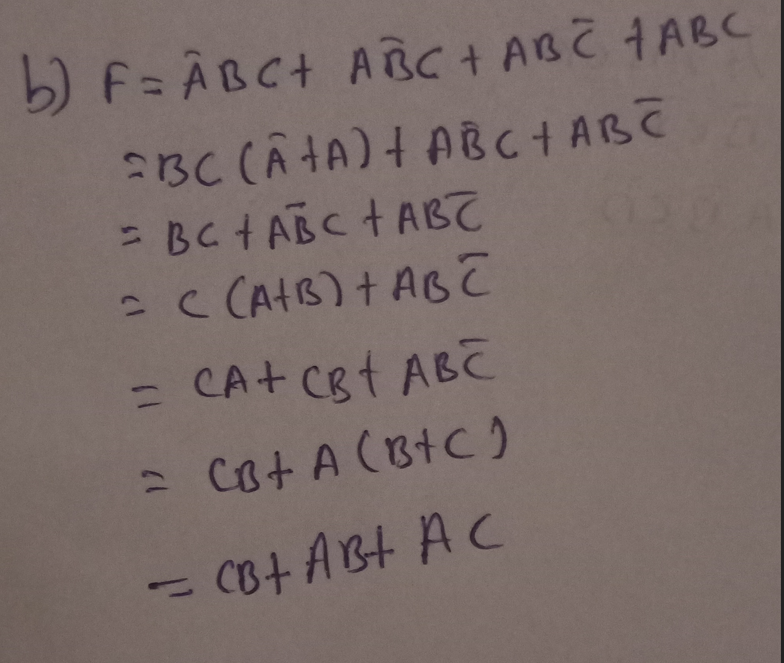 b) F = A̅BC + AB̅C + ABC̅ + ABC
= BC (A̅+A) + AB̅C + ABC̅
= BC + AB̅C + ABC̅
= C (A+B) + ABC̅
= CA + CB + ABC̅
= CB + A (B+C)
= CB + AB + AC